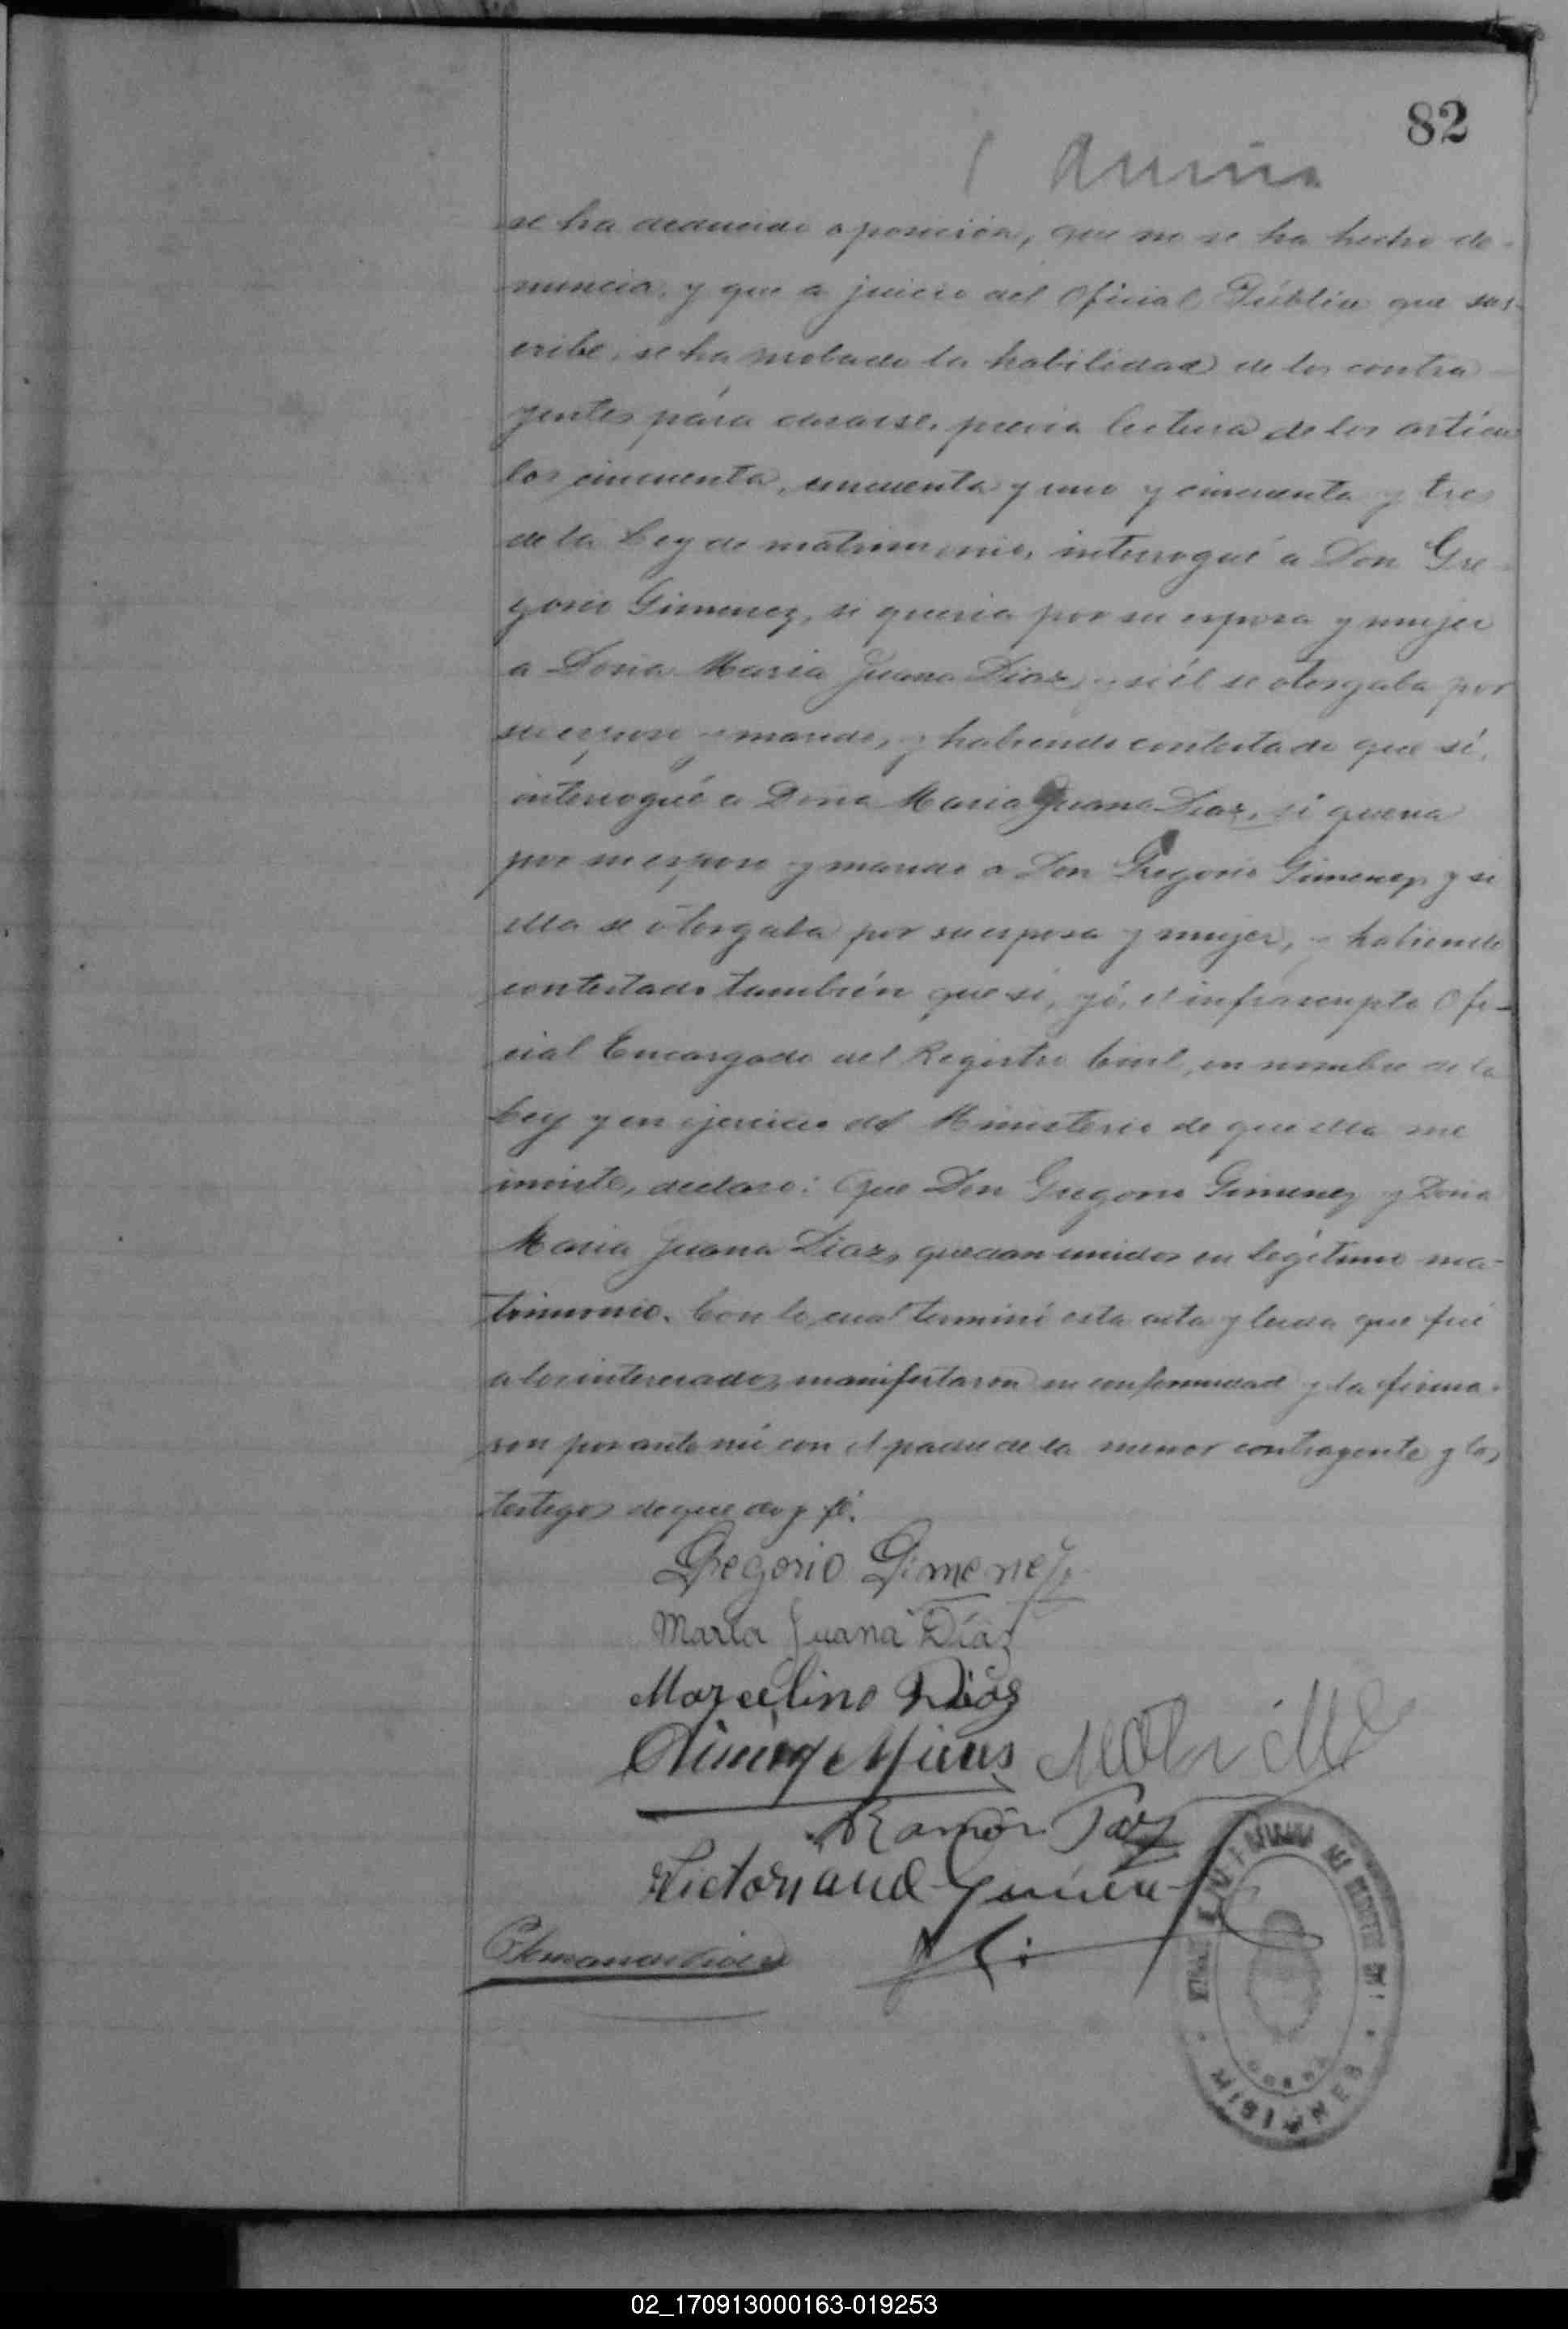 82
se ha deducido oposición, que no se ha hecho de-
nuncia, y que a juicio del Oficial Público que sus-
cribe, se ha probado la habilidad de los contra-
yentes pára casarse, previa lectura de los articu
los cincuenta, cincuenta y uno y cincuenta y tres
de la Ley de matrimonio, interrogué a Don Gre-
gorio Gimenez, si queria por su esposa y mujer
a Doña Maria Juana Diaz, y si él se otorgaba por
su esposo y marido, y habiendo contestado que sí,
interrogué a Doña Maria Juana Diaz, si queria
por su esposo y marido a Don Gregorio Gimenez, y si
ella se otorgaba por su esposa y mujer, y habiendo
contestado también que si, yó, el infrascripto Ofi-
cial Encargado del Registro Civil, en nombre de la
Ley y en ejercicio del Ministerio de que ella me
inviste, declaro: Que Don Gregorio Gimenez y Doña
Maria Juana Diaz, quedan unidos en legítimo ma-
trimonio. Con lo cual terminó esta acta y leida que fué
a los interesados, manifestaron su conformidad y la firma-
ron por ante mí con el padre de la menor contrayente y los
testigos de que doy fé.
Gregorio Gimenez
Maria Juana Díaz
Marcelino Diaz
Ramón Paz
Victoriano
MISIONES
02_170913000163-019253